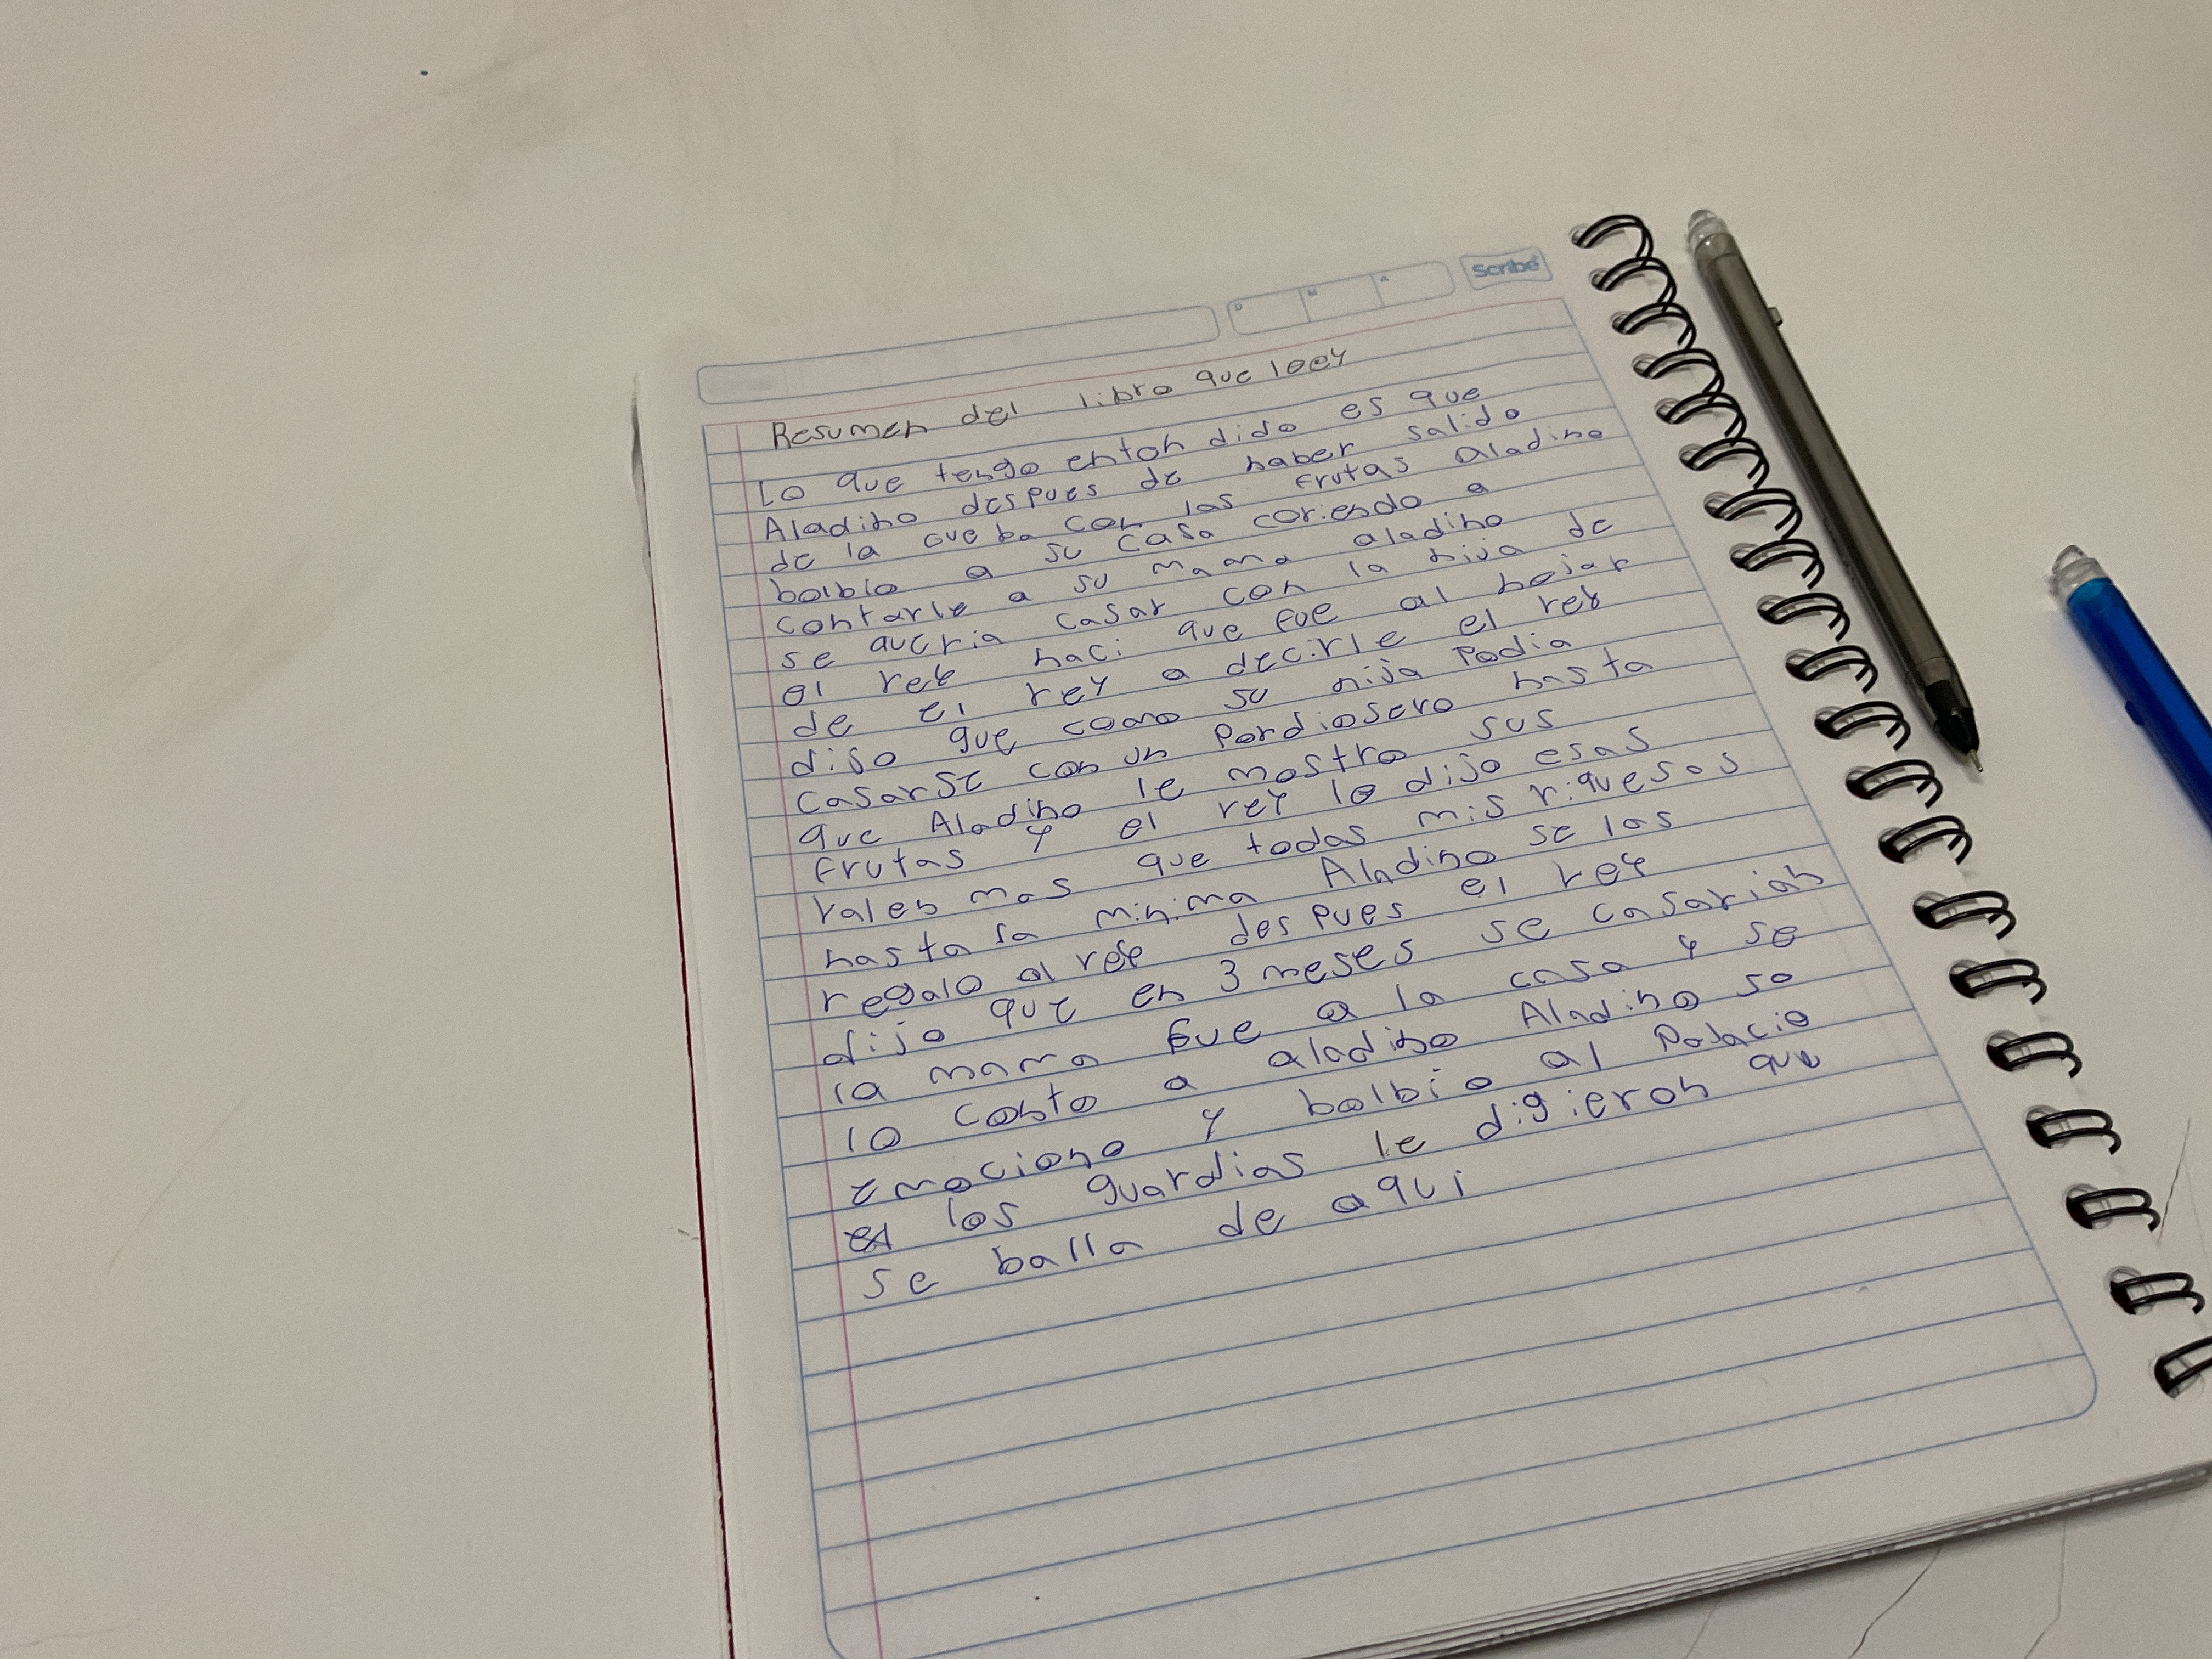 D M A Scribe
Resumen del libro que leey
Lo que tengo entondido es que
Aladino despues de haber salido
de la cueba con las frutas Aladino
bolbio a su casa coriendo a
contarle a su mama aladino
se queria casar con la hija de
el rey haci que fue al
de el rey a decirle el rey
dijo que como su hija podia
casarse con un pordiosero hasta
que Aladino le mostro sus
frutas y el rey le dijo esas
valen mas que todas mis riquesas
hasta la minima Aladino se las
regalo al rey despues el rey
dijo que en 3 meses se casarian
la mama fue a la casa y se
lo conto a aladino Aladino se
emociono y bolbio al palacio
los guardias le digieron que
se balla de aqui